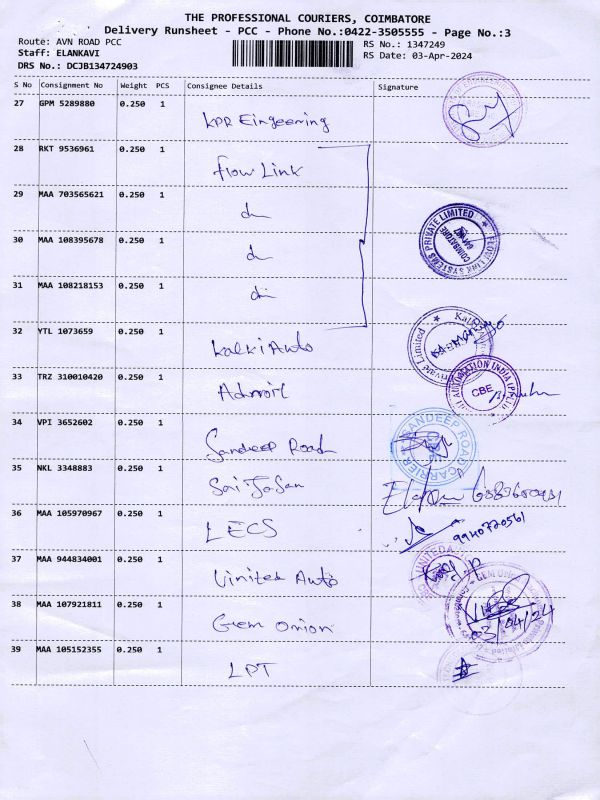 THE PROFESSIONAL COURIERS, COIMBATORE
Delivery Runsheet - PCC - Phone No.:0422-3505555 - Page No.:3
Route: AVN ROAD PCC
RS No.: 1347249
Staff: ELANKAVI
RS Date: 03-Apr-2024
DRS No.: DCJB134724903
S No Consignment No Weight PCS Consignee Details Signature
27 GPM 5289880 0.250 1 KPR Eingeering
28 RKT 9536961 0.250 1 flow Link
29 MAA 703565621 0.250 1
30 MAA 108395678 0.250 1
31 MAA 108218153 0.250 1
FLOW LINK SYSTEMS PRIVATE LIMITED COIMBATORE
32 YTL 1073659 0.250 1 Kalki Auto
Private Limited
33 TRZ 310010420 0.250 1
AUTOMATION INDIA (P) LTD CBE
34 VPI 3652602 0.250 1 Sandeep Road
SANDEEP ROAD CARRIER
35 NKL 3348883 0.250 1
36 MAA 105970967 0.250 1 LECS 9940720561
37 MAA 944834001 0.250 1 United Auto
UNITED
38 MAA 107921811 0.250 1 Gem Onion
03/04/24
39 MAA 105152355 0.250 1 LPT